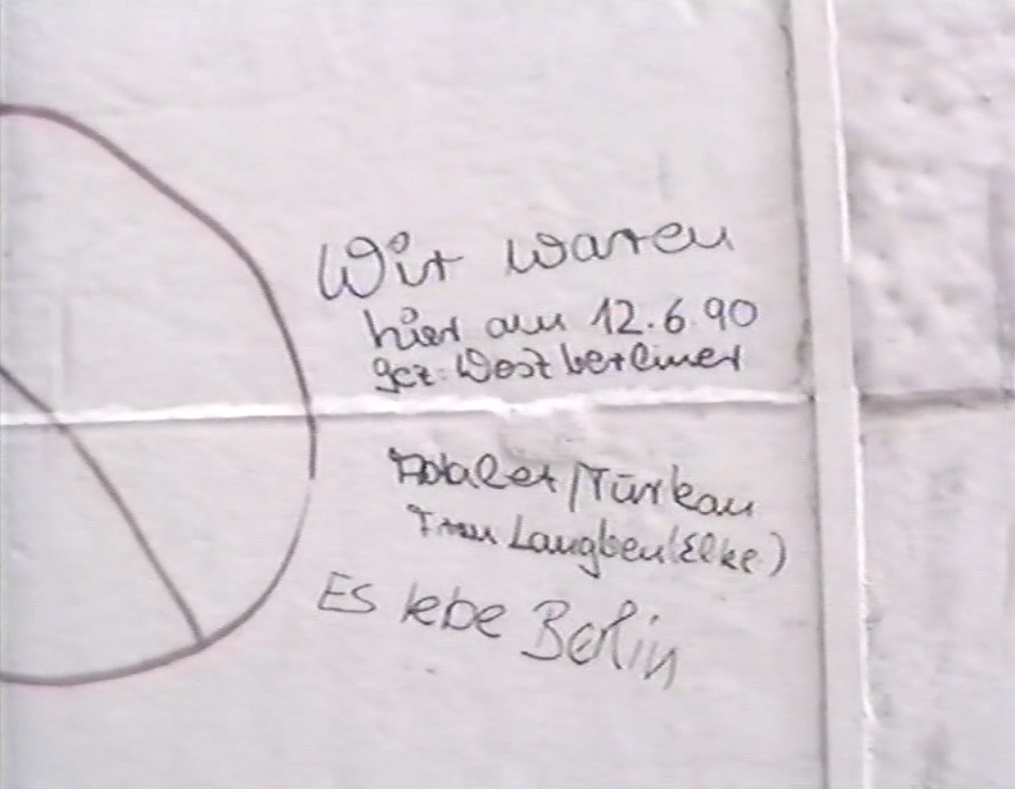 Wir waren
hier am 12.6.90
gez: Westberliner
/Türkan
Langben (Elke)
Es lebe Berlin